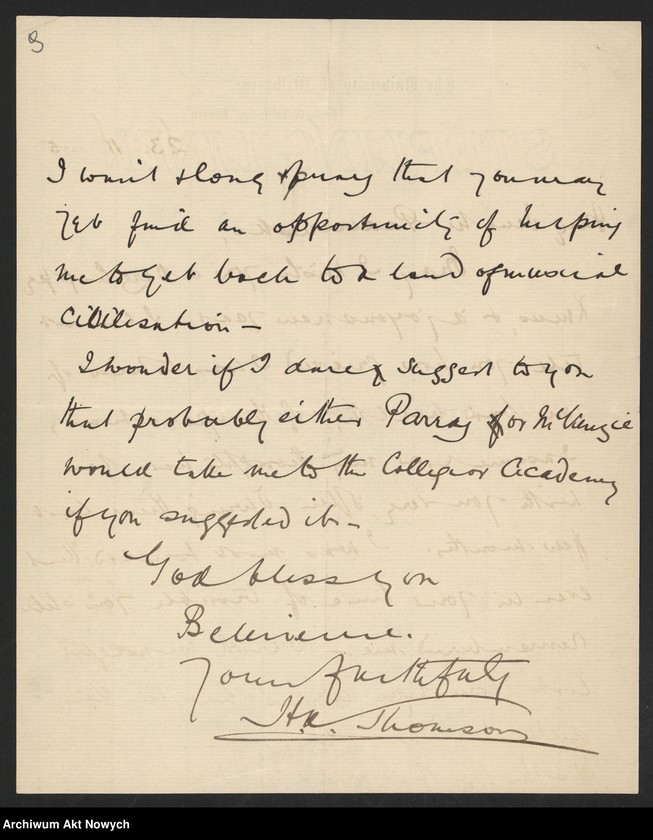 3
I wait & long & pray that you may
yet find an opportunity of helping
me to get back to a land of musical
Civilisation —
I wonder if I dare suggest to you
that probably either Parry or McKenzie
would take me to the College or Academy
if you suggested it —
God bless you
Believe me.
Yours faithfully
H.A. Thomson
Archiwum Akt Nowych